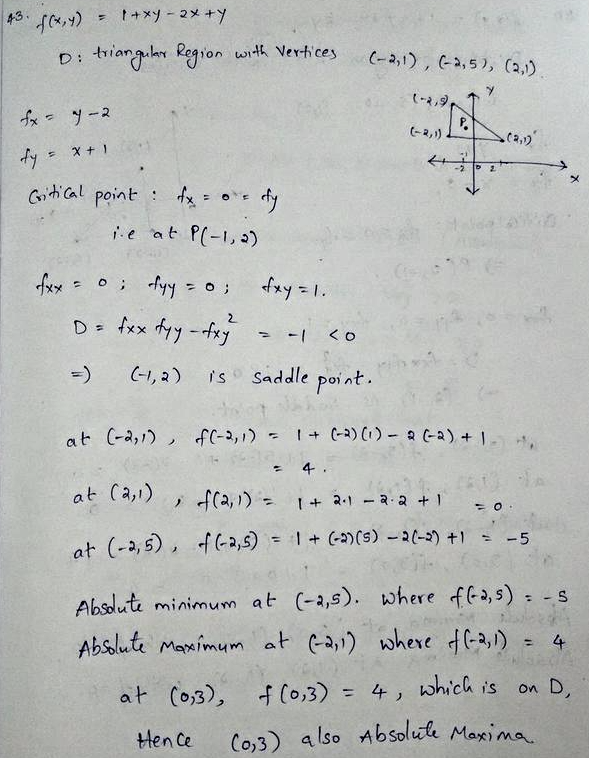 43. f(x,y) = 1+xy-2x+y
D: triangular Region with Vertices (-2,1), (-2,5), (2,1)
y
(-2,5)
fx = y-2
P.
(-2,1)
(2,1)
fy = x+1
-1
-2 0 2
x
Critical point : fx = 0 = fy
i.e at P(-1,2)
fxx = 0 ; fyy = 0 ; fxy = 1.
D = fxx fyy - fxy² = -1 <0
=) (-1,2) is saddle point.
at (-2,1), f(-2,1) = 1+(-2)(1)-2(-2)+1
= 4.
at (2,1), f(2,1) = 1+2.1-2.2+1 = 0.
at (-2,5), f(-2,5) = 1+(-2)(5)-2(-2)+1 = -5
Absolute minimum at (-2,5). where f(-2,5) = -5
Absolute Maximum at (-2,1) where f(-2,1) = 4
at (0,3), f(0,3) = 4, which is on D,
Hence (0,3) also Absolute Maxima